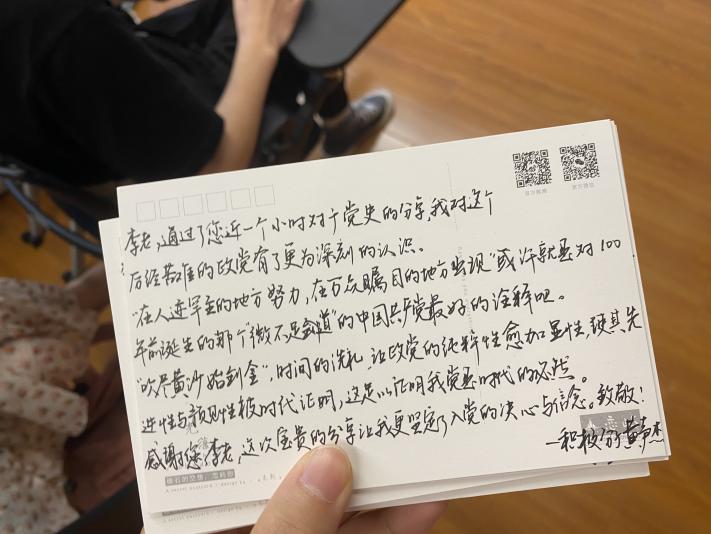 李老，通过了您近一个小时对于党史的分享，我对这个
历经苦难的政党有了更为深刻的认识。
“在人迹罕至的地方努力，在万众瞩目的地方出现”或许就是对100
年前诞生的那个“微不足道”的中国共产党最好的诠释吧。
“吹尽黄沙始到金”，时间的洗礼，让政党的纯粹性愈加显性，使其先
进性与预见性被时代证明，这足以证明我党是时代的必然。
感谢您李老，这次宝贵的分享让我更坚定了入党的决心与信念。致敬！
一积极分子
A secret postcard / design by